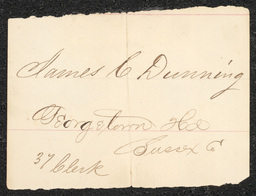 James C Dunning
Georgetown
Sussex Co
37 Clerk